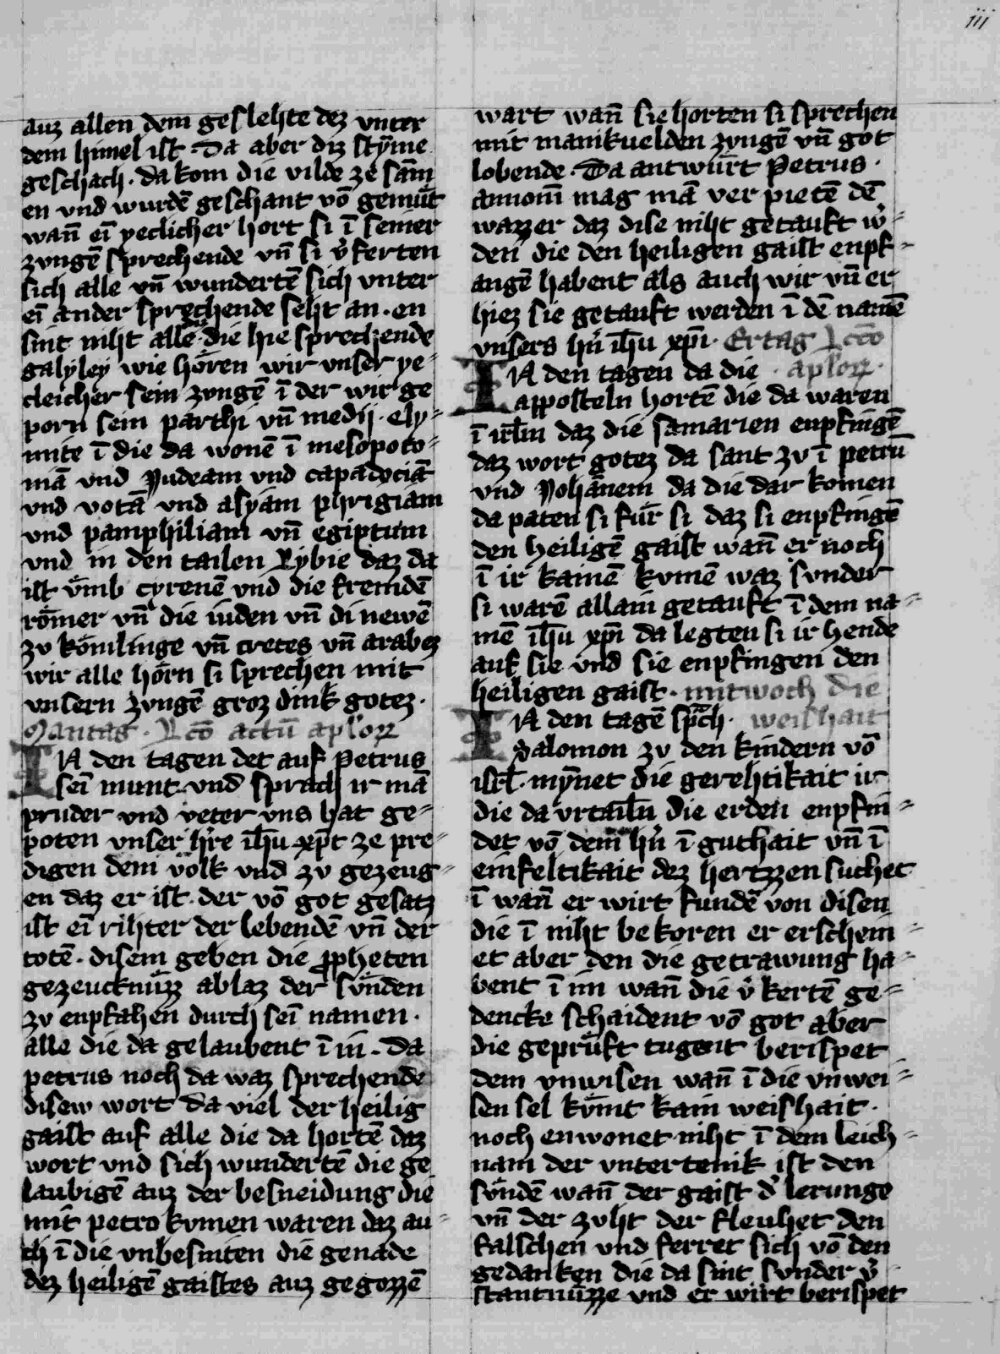 iii
auz allen dem geslehte dez vnter
dem himel ist · Da aber diz stÿme
geschach · da kom die vilde ze sām
en vnd wurdē geschant vō gemüt
wan̄ eī yeclicher hort si ī seiner
zvngē sprechende vn̄ si v̾ferten
sich alle vn̄ wundertē sich vnter
eī ander sprechende seht an · en
sint niht alle · die hie sprechende
galyley wie hören wir vnser ye
cleicher sein zvngē ī der wir ge
porn sein parthi vn̄ medij · ely
mite ī die da wonē ī mesopoto⸗
miā vnd Judeam vnd capadociā
vnd votā vnd asyam phrigiam
vnd pamphiliam vn̄ egiptum
vnd in den tailen Lybie daz da
ist vmb cyrenē vnd die fremdē
römer vn̄ die iuden vn̄ di newē
zv kömlinge vn̄ cretes vn̄ arabez
wir alle hörn si sprechen mit
vnsern zvngē groz dink gotez ·
Mantag · Lc̄o actū aplo℞
IN den tagen det auf Petrus
seī munt · vnd sprach ir mā
pruder vnd veter vns hat ge⸗
poten vnser h̾re ih̄u xp̄t ze pre⸗
digen dem volk vnd zv gezeug⸗
en daz er ist · der vō got gesatz
ist eī rihter der lebendē vn̄ der
totē · disem geben die ꝓpheten
gezeucknüzz ablaz der svnden
zv enpfahen durch seī namen ·
alle die da gelaubent ī in · Da
petrus noch da waz sprechende
disew wort da viel der heilig
gaist auf alle die da hortē daz
wort vnd sich wundertē die ge
laubigē auz der besneidung die
mit petro kvmen waren daz au⸗
ch ī die vnbesniten die genade
dez heiligē gaistes auz gegozzē
wart wan̄ sie horten si sprechen
mit manikuelden zvngē vn̄ got
lobende · Da antwürt Petrus ·
annom mag mā ver pietē dē
wazzer daz dise niht getauft w̾⸗
den die den heiligen gaist enpf⸗
angē habent als auch wir vn̄ er
hiez sie getauft werden ī dē namē
vnsers h̾n ih̄u xp̄i · Ertag Lc̄co
IN den tagen da die · aplo℞ ·
apposteln hortē die da waren
ī irl̄m daz die samarien enpfingē
daz wort gotez da sant zv ī petrū
vnd Johānem da die dar komen
da paten si für si daz si enpfingē
den heiligē gaist wan̄ er noch
ī ir kainē kvmē waz svnder
si warē allain getauft ī dem na⸗
mē ih̄u xp̄i da legten si ir hende
auf sie vnd sie enpfingen den
heiligen gaist · mitwoch die
IN den tagē sprͣch · weishait
Salomon zv den kindern vō
isrl̄ · mÿnet die gerehtikait ir
die da vrtailn̄ die erden enpfin⸗
det vō dem h̾n ī guthait vn̄ ī
einfeltikait dez hertzzen suchet
ī wan̄ er wirt fundē von disen
die ī niht bekoren er erschein⸗
et aber den die getrawung ha⸗
bent ī im wan̄ die v̾kertē ge⸗
dencke schaident vō got aber
die geprüft tugent berispet
dem vnwisen wan̄ ī die vnwei⸗
sen sel kvmt kain weishait ·
noch enwonet niht ī dem leich⸗
nam der vntertenik ist den
svndē wan̄ der gaist d̾ lerunge
vn̄ der zvht der fleuhet den
falschen vnd ferret sich vō den
gedanken die da sint svnder v̾⸗
stantnüzze vnd er wirt berispet